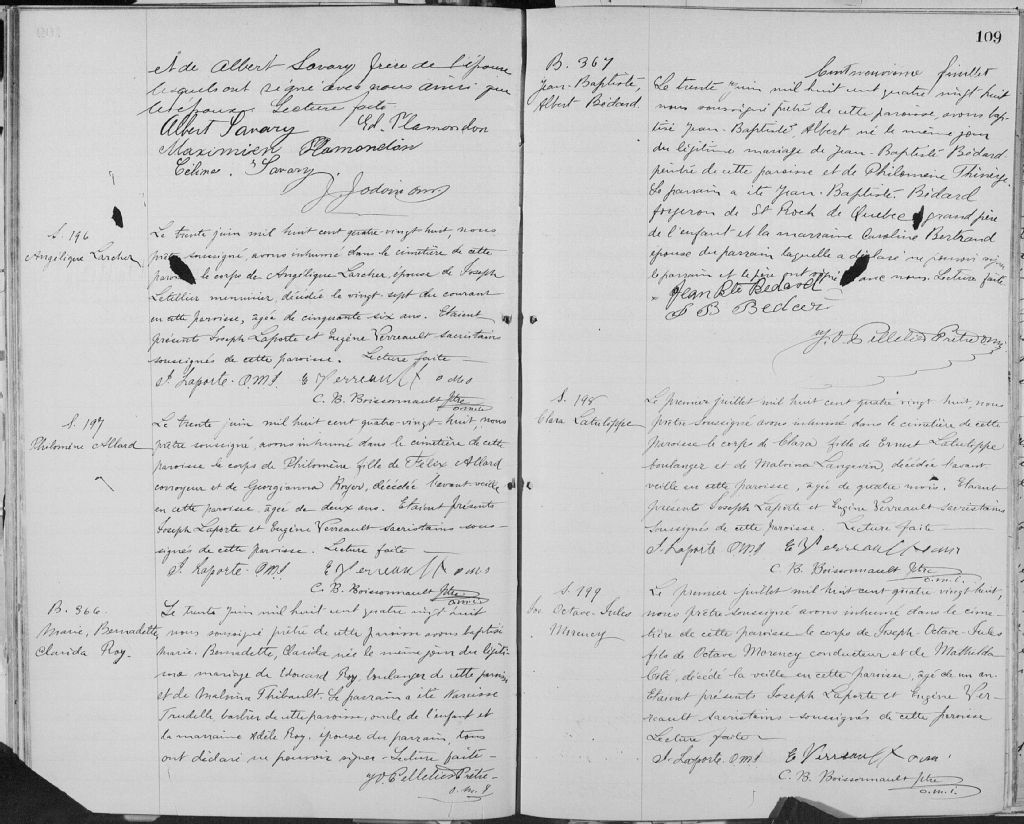 et de Albert Savary frère de l'épouse
lesquels ont signé avec nous ainsi que
les époux. Lecture faite
Albert Savary Ed. Plamondon
Maximien Plamondon
Célina Savary
J. Jodoin omi
S. 196
Angélique Larcher
Le trente juin mil huit cent quatre vingt huit nous
prêtre soussigné, avons inhumé dans le cimetière de cette
paroisse le corps de Angélique Larcher, épouse de Joseph
Letellier menuisier, décédée le vingt sept du courant
en cette paroisse, agée de cinquante six ans. Etaient
présents Joseph Laporte et Eugène Verreault sacristains
soussignés de cette paroisse. Lecture faite
J. Laporte O.M.I. E Verreault o m i
C. B. Boissonnault Ptre
o.m.i.
S. 197
Philomène Allard
Le trente juin mil huit cent quatre-vingt-huit, nous
prêtre soussigné, avons inhumé dans le cimetière de cette
paroisse le corps de Philomène fille de Félix Allard
corroyeur et de Georgianna Royer, décédée l'avant veille
en cette paroisse agée de deux ans. Etaient présents
Joseph Laporte et Eugène Verreault sacristains sous-
signés de cette paroisse. Lecture faite
J. Laporte O.M.I. E Verreault o m i
C. B. Boissonnault Ptre
o.m.i.
B. 366
Marie, Bernadette,
Clarida Roy.
Le trente juin mil huit cent quatre vingt huit
nous soussigné prêtre de cette paroisse avons baptisé
Marie. Bernadette, Clarida née le même jour du légiti-
me mariage de Edouard Roy, boulanger de cette paroisse
et de Malvina Thibault. Le parrain a été Narcisse
Trudelle barbier de cette paroisse, oncle de l'enfant et
la marraine Adèle Roy, epouse du parrain, tous
ont déclaré ne pouvoir signer. Lecture faite
J O Pelletier Prêtre
o. m. I
109
B. 367
Jean-Baptiste,
Albert Bédard.
Cent neuvième feuillet
Le trente juin mil huit cent quatre vingt huit
nous soussigné prêtre de cette paroisse, avons bap-
tisé Jean-Baptiste Albert né le même jour
du légitime mariage de Jean-Baptiste Bédard
peintre de cette paroisse et de Philomène Thivierge.
Le parrain a été Jean-Baptiste Bédard
forgeron de St Roch de Quebec grand père
de l'enfant et la marraine Caroline Bertrand
épouse du parrain laquelle a déclaré ne pouvoir signer
le parrain et le père ont signé avec nous. Lecture faite
Jean Bte Bedard
J B Bedard
J. O. Pelletier Prêtre o.m.i
S. 198
Clara Latulippe
Le premier juillet mil huit cent quatre vingt huit, nous
prêtre soussigné avons inhumé dans le cimetière de cette
paroisse le corps de Clara fille de Ernest Latulippe
boulanger et de Malvina Langevin, décédée l'avant
veille en cette paroisse, agée de quatre mois. Etaient
présents Joseph Laporte et Eugène Verreault sacristains
soussignés de cette paroisse. Lecture faite
J. Laporte O.M.I. E Verreault o m i
C. B. Boissonnault Ptre
o.m.i.
S. 199
Jos Octave-Jules
Morency
Le premier juillet mil huit cent quatre vingt huit,
nous prêtre soussigné avons inhumé dans le cime-
tière de cette paroisse le corps de Joseph-Octave-Jules
fils de Octave Morency conducteur et de Mathilda
Coté, décédé la veille en cette paroisse, agé de un an.
Etaient présents Joseph Laporte et Eugène Ver-
reault sacristains soussignés de cette paroisse
Lecture faite
J. Laporte O.M.I. E Verreault o.m.i
C. B. Boissonnault Ptre
o.m.i.